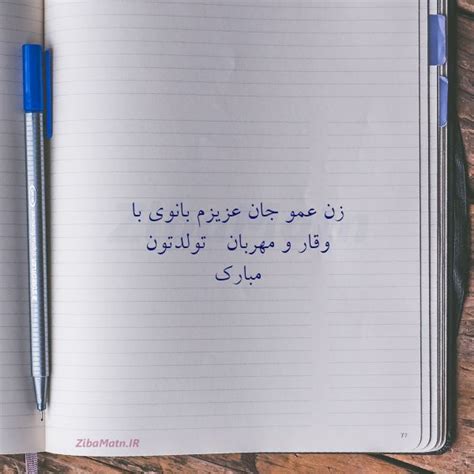 زن عمو جان عزیزم بانوی با
وقار و مهربان تولدتون
مبارک
ZibaMatn.IR